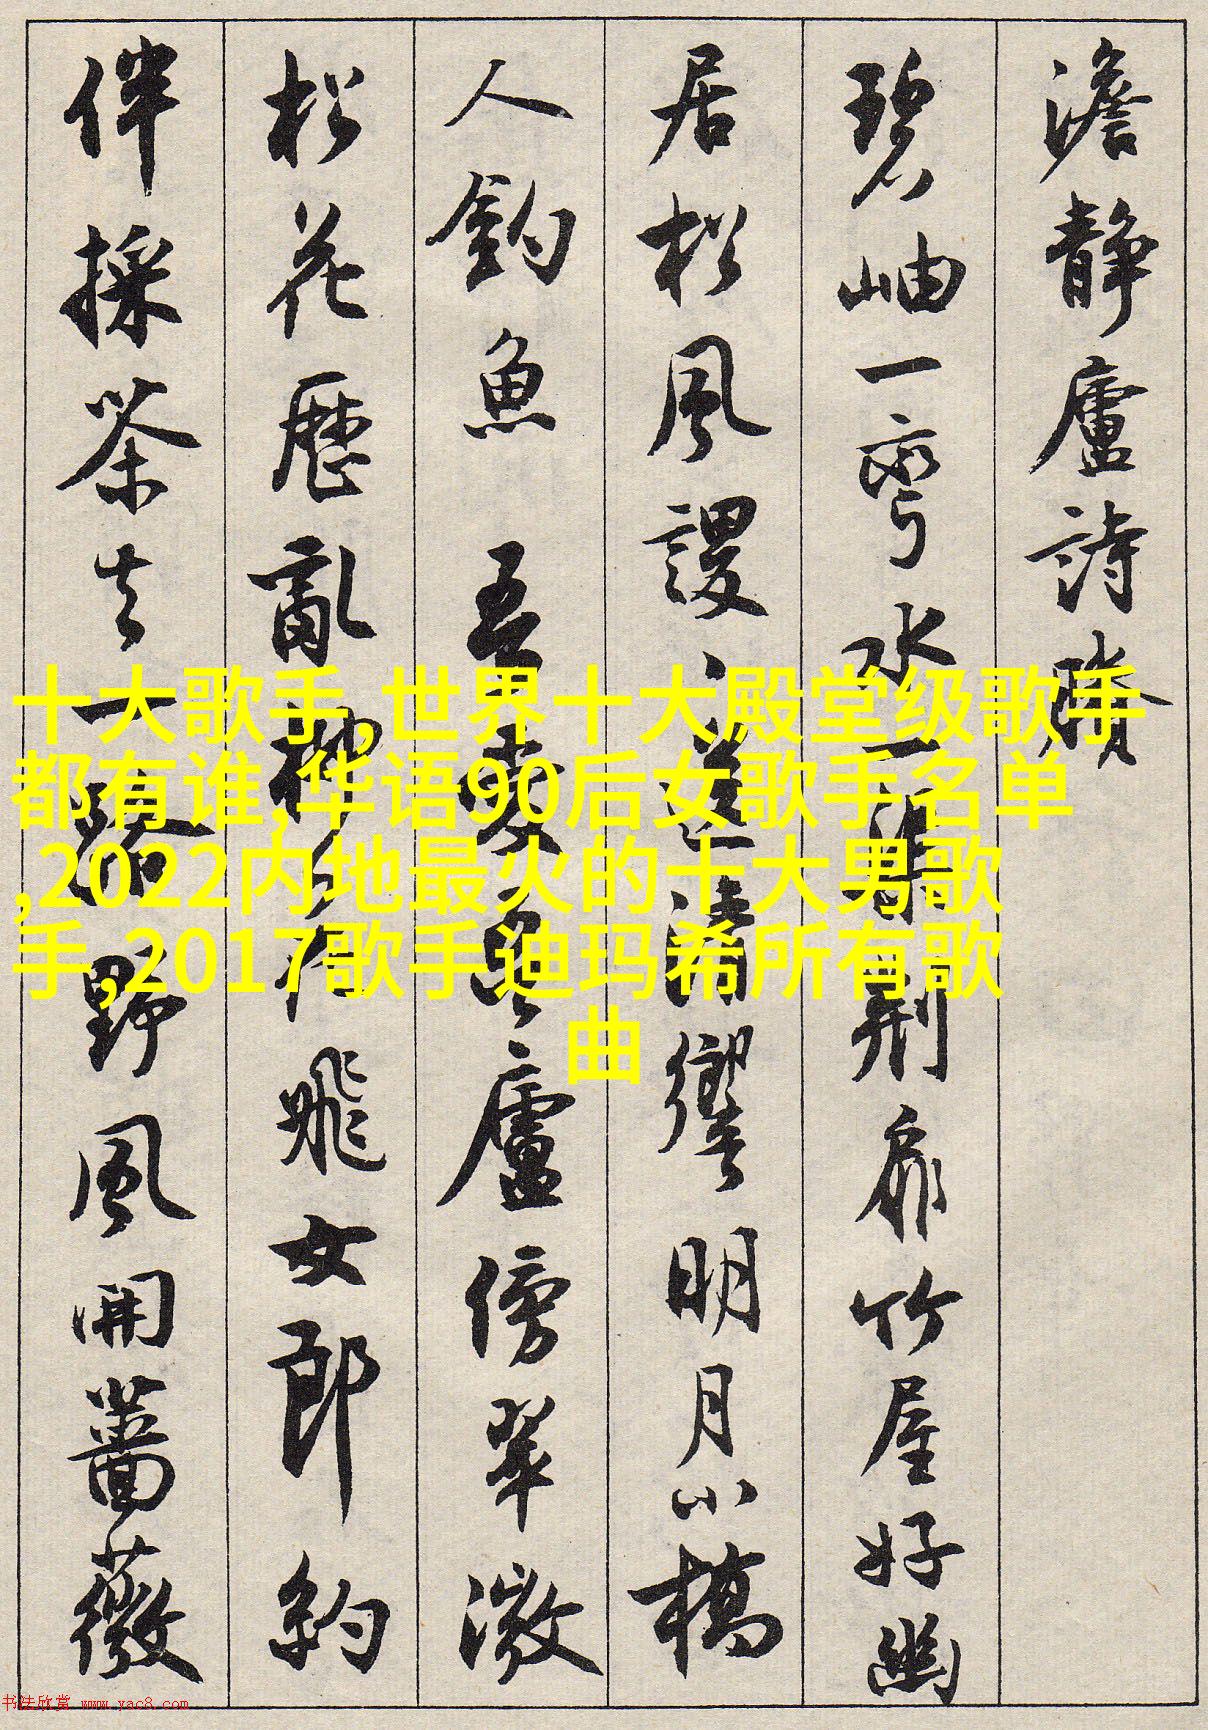 澹静廬詩賸
碧岫一彎水一
荆扉竹屋好幽
居松風謖
清響明月小橋
人釣魚 吾愛吾廬傍翠微
松花歷亂
飛女郎約
伴採茶去一路野風開薔薇
十大歌手,世界十大殿堂级歌手
都有谁,华语90后女歌手名单
,2022内地最火的十大男歌
手,2017歌手迪玛希所有歌
曲
书法欣赏 www.yac8.com